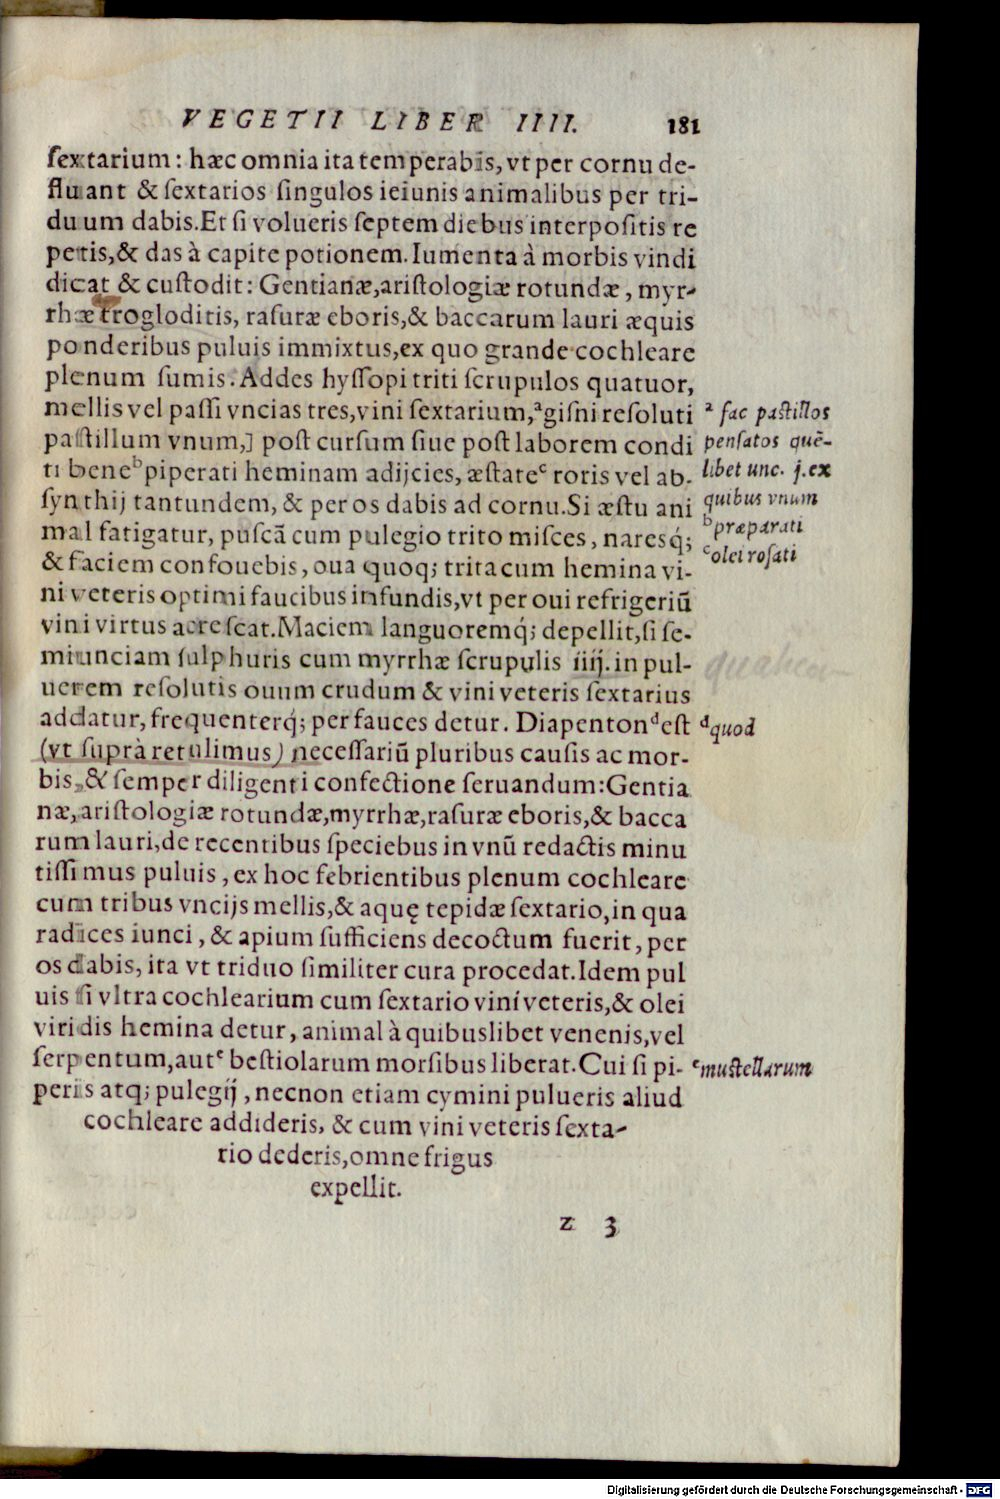 VEGETII LIBER IIII. 181
sextarium: hæc omnia ita temperabis, vt per cornu de-
fluant & sextarios singulos ieiunis animalibus per tri-
duum dabis. Et si volueris septem diebus interpositis re
petis, & das à capite potionem. Iumenta à morbis vindi
dicat & custodit: Gentianæ, aristologiæ rotundæ, myr-
rhæ trogloditis, rasuræ eboris, & baccarum lauri æquis
ponderibus puluis immixtus, ex quo grande cochleare
plenum sumis. Addes hyssopi triti scrupulos quatuor,
mellis vel passi vncias tres, vini sextarium, ᵃgisni resoluti
pastillum vnum,] post cursum siue post laborem condi
ti bene ᵇpiperati heminam adijcies, æstate ᶜ roris vel ab-
synthij tantundem, & per os dabis ad cornu. Si æstu ani
mal fatigatur, puscā cum pulegio trito misces, naresq́;
& faciem confouebis, oua quoq; trita cum hemina vi-
ni veteris optimi faucibus infundis, vt per oui refrigeriū
vini virtus acrescat. Maciem languoremq́; depellit, si se-
miunciam sulphuris cum myrrhæ scrupulis iiij. in pul-
uerem resolutis ouum crudum & vini veteris sextarius
addatur, frequenterq́; per fauces detur. Diapenton ᵈest
(vt suprà retulimus) necessariū pluribus causis ac mor-
bis, & semper diligenti confectione seruandum: Gentia
næ, aristologiæ rotundæ, myrrhæ, rasuræ eboris, & bacca
rum lauri, de recentibus speciebus in vnū redactis minu
tissimus puluis, ex hoc febrientibus plenum cochleare
cum tribus vncijs mellis, & aquę tepidæ sextario, in qua
radices iunci, & apium sufficiens decoctum fuerit, per
os dabis, ita vt triduo similiter cura procedat. Idem pul
uis si vltra cochlearium cum sextario vini veteris, & olei
viridis hemina detur, animal à quibuslibet venenis, vel
serpentum, aut ᵉ bestiolarum morsibus liberat. Cui si pi-
peris atq; pulegij, necnon etiam cymini pulueris aliud
cochleare addideris, & cum vini veteris sexta-
rio dederis, omne frigus
expellit.
z 3
ᵃ fac pastillos
pensatos quē-
libet unc. j. ex
quibus vnum
ᵇpræparati
ᶜolei rosati
ᵈquod
ᵉmustellarum
Digitalisierung gefördert durch die Deutsche Forschungsgemeinschaft - DFG